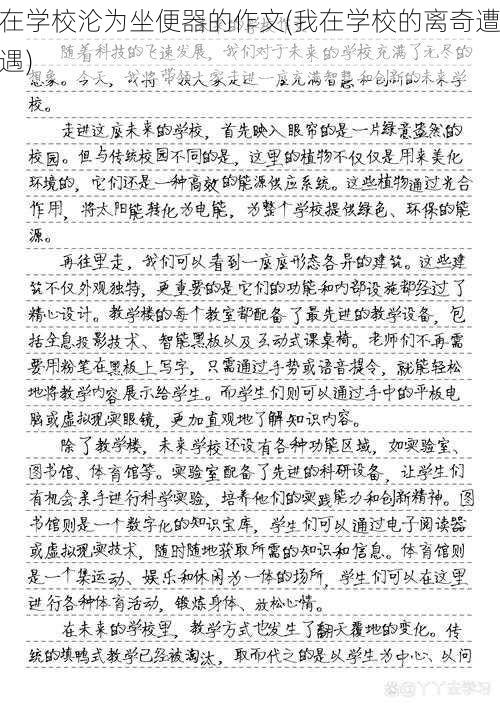 在学校沦为坐便器的作文(我在学校的离奇遭
遇)
随着科技的飞速发展，我们对于未来的学校充满了无尽的
想象。今天，我将带领大家走进一座充满智慧和创新的未来学
校。
走进这座未来的学校，首先映入眼帘的是一片绿意盎然的
校园。但与传统校园不同的是，这里的植物不仅仅是用来美化
环境的，它们还是一种高效的能源供应系统。这些植物通过光合
作用，将太阳能转化为电能，为整个学校提供绿色、环保的能
源。
再往里走，我们可以看到一座座形态各异的建筑。这些建
筑不仅外观独特，更重要的是它们的功能和内部设施都经过了
精心设计。教学楼的每个教室都配备了最先进的教学设备，包
括全息投影技术、智能黑板以及互动式课桌椅。老师们不再需
要用粉笔在黑板上写字，只需通过手势或语音提令，就能轻松
地将教学内容展示给学生。而学生们则可以通过手中的平板电
脑或虚拟现实眼镜，更加直观地了解知识内容。
除了教学楼，未来学校还设有各种功能区域，如实验室、
图书馆、体育馆等。实验室配备了先进的科研设备，让学生们
有机会亲手进行科学实验，培养他们的实践能力和创新精神。图
书馆则是一个数字化的知识宝库，学生们可以通过电子阅读器
或虚拟现实技术，随时随地获取所需的知识和信息。体育馆则
是一个集运动、娱乐和休闲为一体的场所，学生们可以在这里
进行各种体育活动，锻炼身体、放松心情。
在未来的学校里，教学方式也发生了翻天覆地的变化。传
统的填鸭式教学已经被淘汰，取而代之的是以学生为中心、以问
丫丫去学习